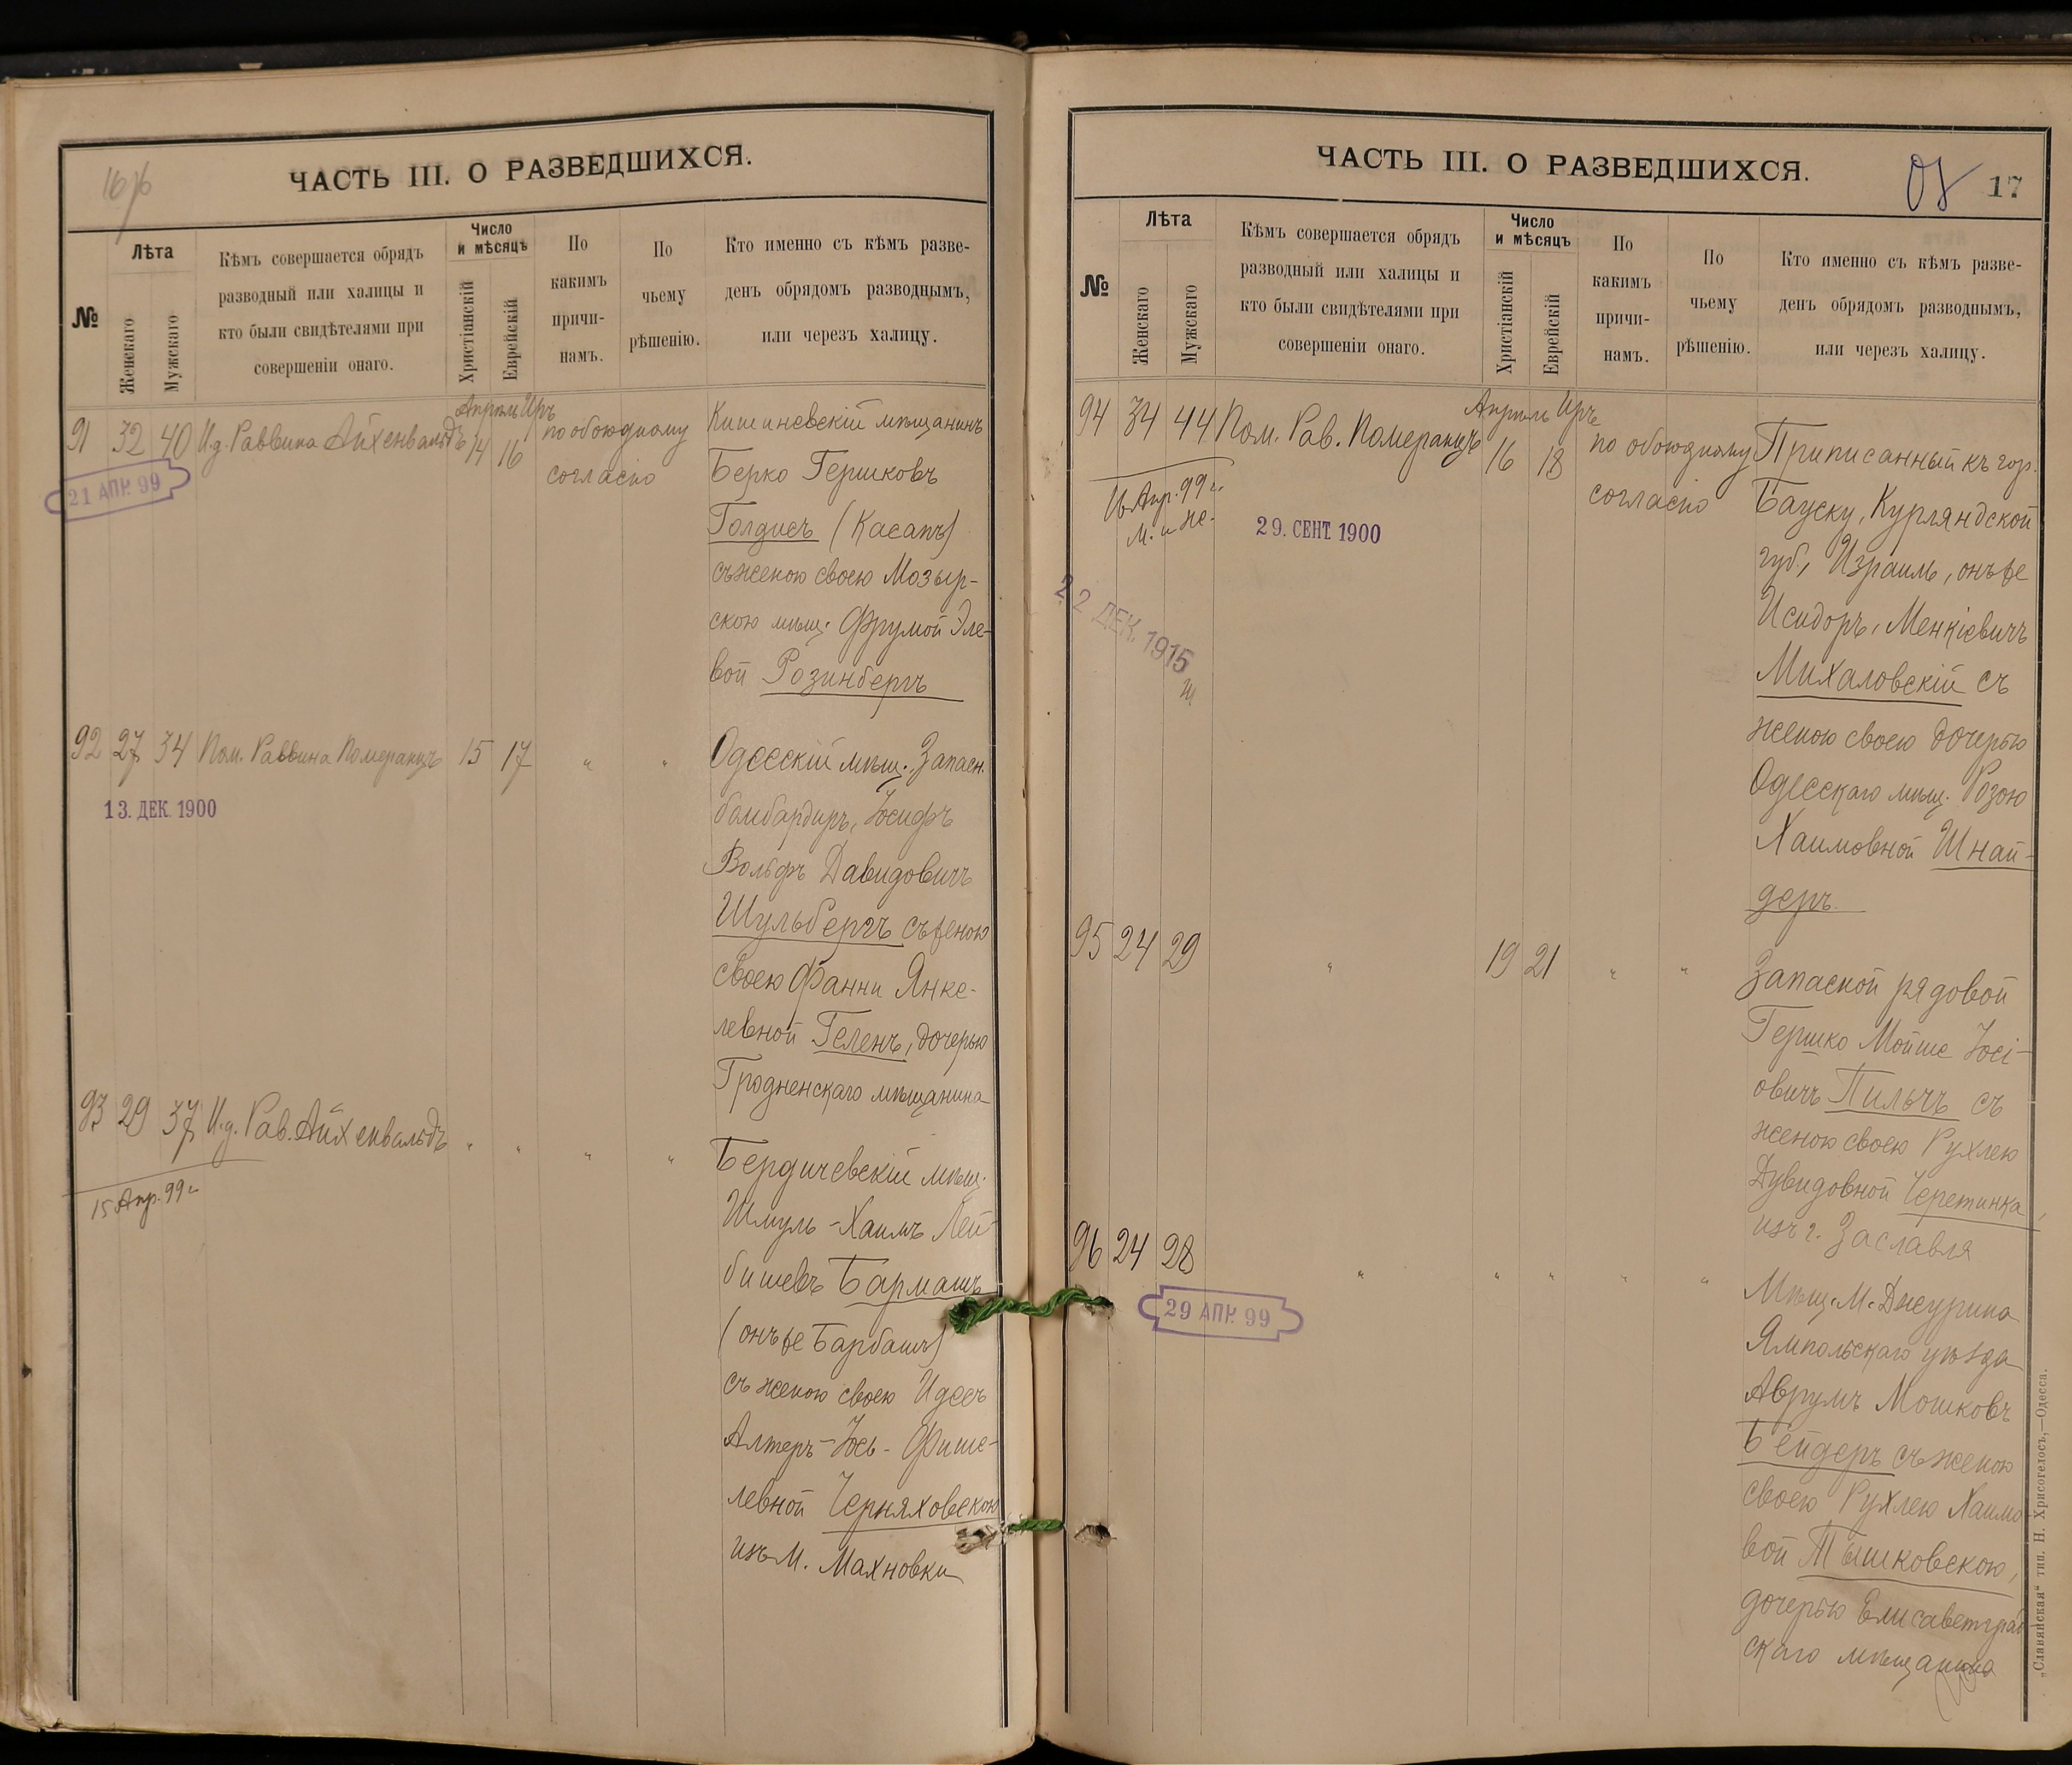 16 об
ЧАСТЬ III. О РАЗВЕДШИХСЯ.
№
Лѣта
Женскаго
Мужскаго
Кѣмъ совершается обрядъ
разводный или халицы и
кто были свидѣтелями при
совершеніи онаго.
Число
и мѣсяцъ
Христіанскій
Еврейскій
По
какимъ
причи-
намъ.
По
чьему
рѣшенію.
Кто именно съ кѣмъ разве-
денъ обрядомъ разводнымъ,
или черезъ халицу.
91 32 40 И.д. Раввина Айхенвальдъ
Апрѣль Иръ
14 16
по обоюдному
согласію
21 АПР. 99
Кишиневскій мѣщанинъ
Берко Гершковъ
Голдисъ (Касапъ)
съ женою своею Мозыр-
скою мѣщ. Фрумой Эле-
вой Розинбергъ
92 27 34 Пом. Раввина Померанцъ 15 17 " "
13. ДЕК. 1900
Одесскій мѣщ. Запасн.
бомбардиръ, Іосифъ
Вольфъ Давидовичъ
Шульбергъ съ женою
своею Фанни Янке-
левной Геленъ, дочерью
Гродненскаго мѣщанина
93 29 37 И.д. Рав. Айхенвальдъ " " " "
15 Апр. 99 г.
Бердичевскій мѣщ.
Шмуль-Хаимъ Лей-
бишевъ Бармашъ
(онъ же Барбашъ)
съ женою своею Идесъ
Алтеръ-Іось-Фише-
левной Черняховскою
изъ М. Махновки
ЧАСТЬ III. О РАЗВЕДШИХСЯ.
17
№
Лѣта
Женскаго
Мужскаго
Кѣмъ совершается обрядъ
разводный или халицы и
кто были свидѣтелями при
совершеніи онаго.
Число
и мѣсяцъ
Христіанскій
Еврейскій
По
какимъ
причи-
намъ.
По
чьему
рѣшенію.
Кто именно съ кѣмъ разве-
денъ обрядомъ разводнымъ,
или черезъ халицу.
94 34 44 Пом. Рав. Померанцъ
Апрѣль Иръ
16 18
по обоюдному
согласію
16 Апр. 99 г.
М. и Ж.
29. СЕНТ. 1900
22 ДЕК. 1915
Приписанный къ гор.
Бауску, Курляндской
губ., Израиль, онъ же
Исидоръ, Менкіевичъ
Михаловскій съ
женою своею дочерью
Одесскаго мѣщ. Розою
Хаимовной Шнай-
деръ
95 24 29 " 19 21 " "
Запасной рядовой
Гершко Мойше Іосі-
овичъ Пильчъ съ
женою своею Рухлею
Дувидовной Черетинка,
изъ г. Заславля
96 24 28 " " " " "
29 АПР. 99
Мѣщ. М. Джурина
Ямпольскаго уѣзда
Аврумъ Мошковъ
Бейдеръ съ женою
своею Рухлею Хаимо-
вой Тышковскою,
дочерью Елисаветград-
скаго мѣщанина
„Славянская“ тип. Н. Хрисогелосъ,—Одесса.